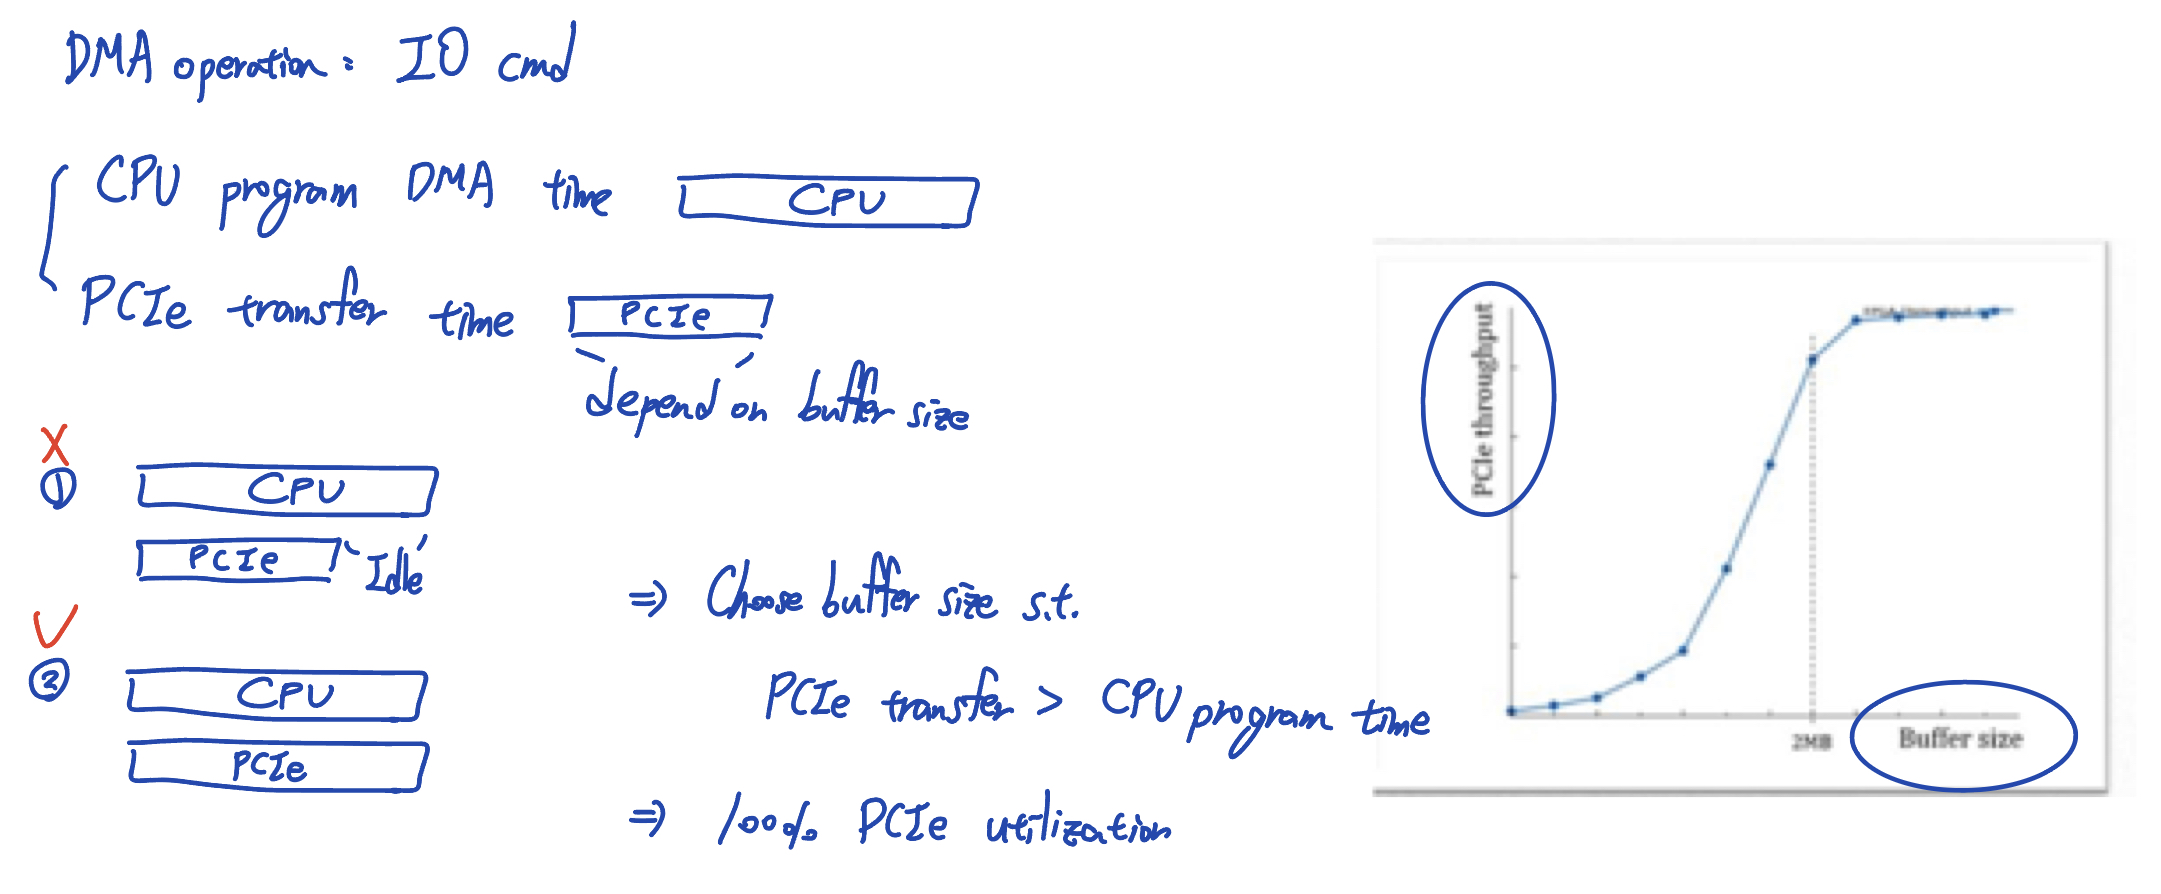 DMA operation: IO cmd
CPU program DMA time
CPU
PCIe transfer time
PCIe
depend on buffer size
X
①
CPU
PCIe
Idle
✓
②
CPU
PCIe
⇒ Choose buffer size s.t.
PCIe transfer > CPU program time
⇒ 100% PCIe utilization
PCIe throughput
2MB
Buffer size